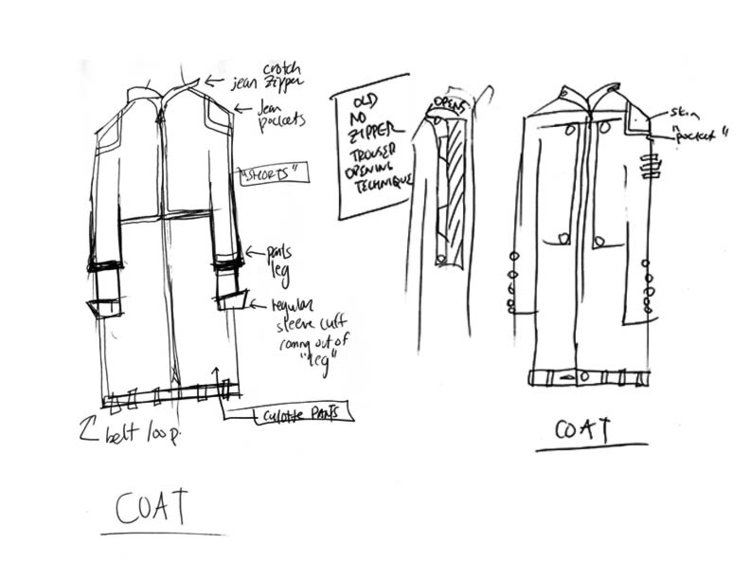 crotch
jean zipper
Jean
pockets
"SHORTS"
pants
leg
regular
sleeve cuff
coming out of
"leg"
CULOTTE PANTS
belt loop.
COAT
OLD
NO
ZIPPER
TROUSER
OPENING
TECHNIQUE
OPENS
skin
"pocket"
COAT